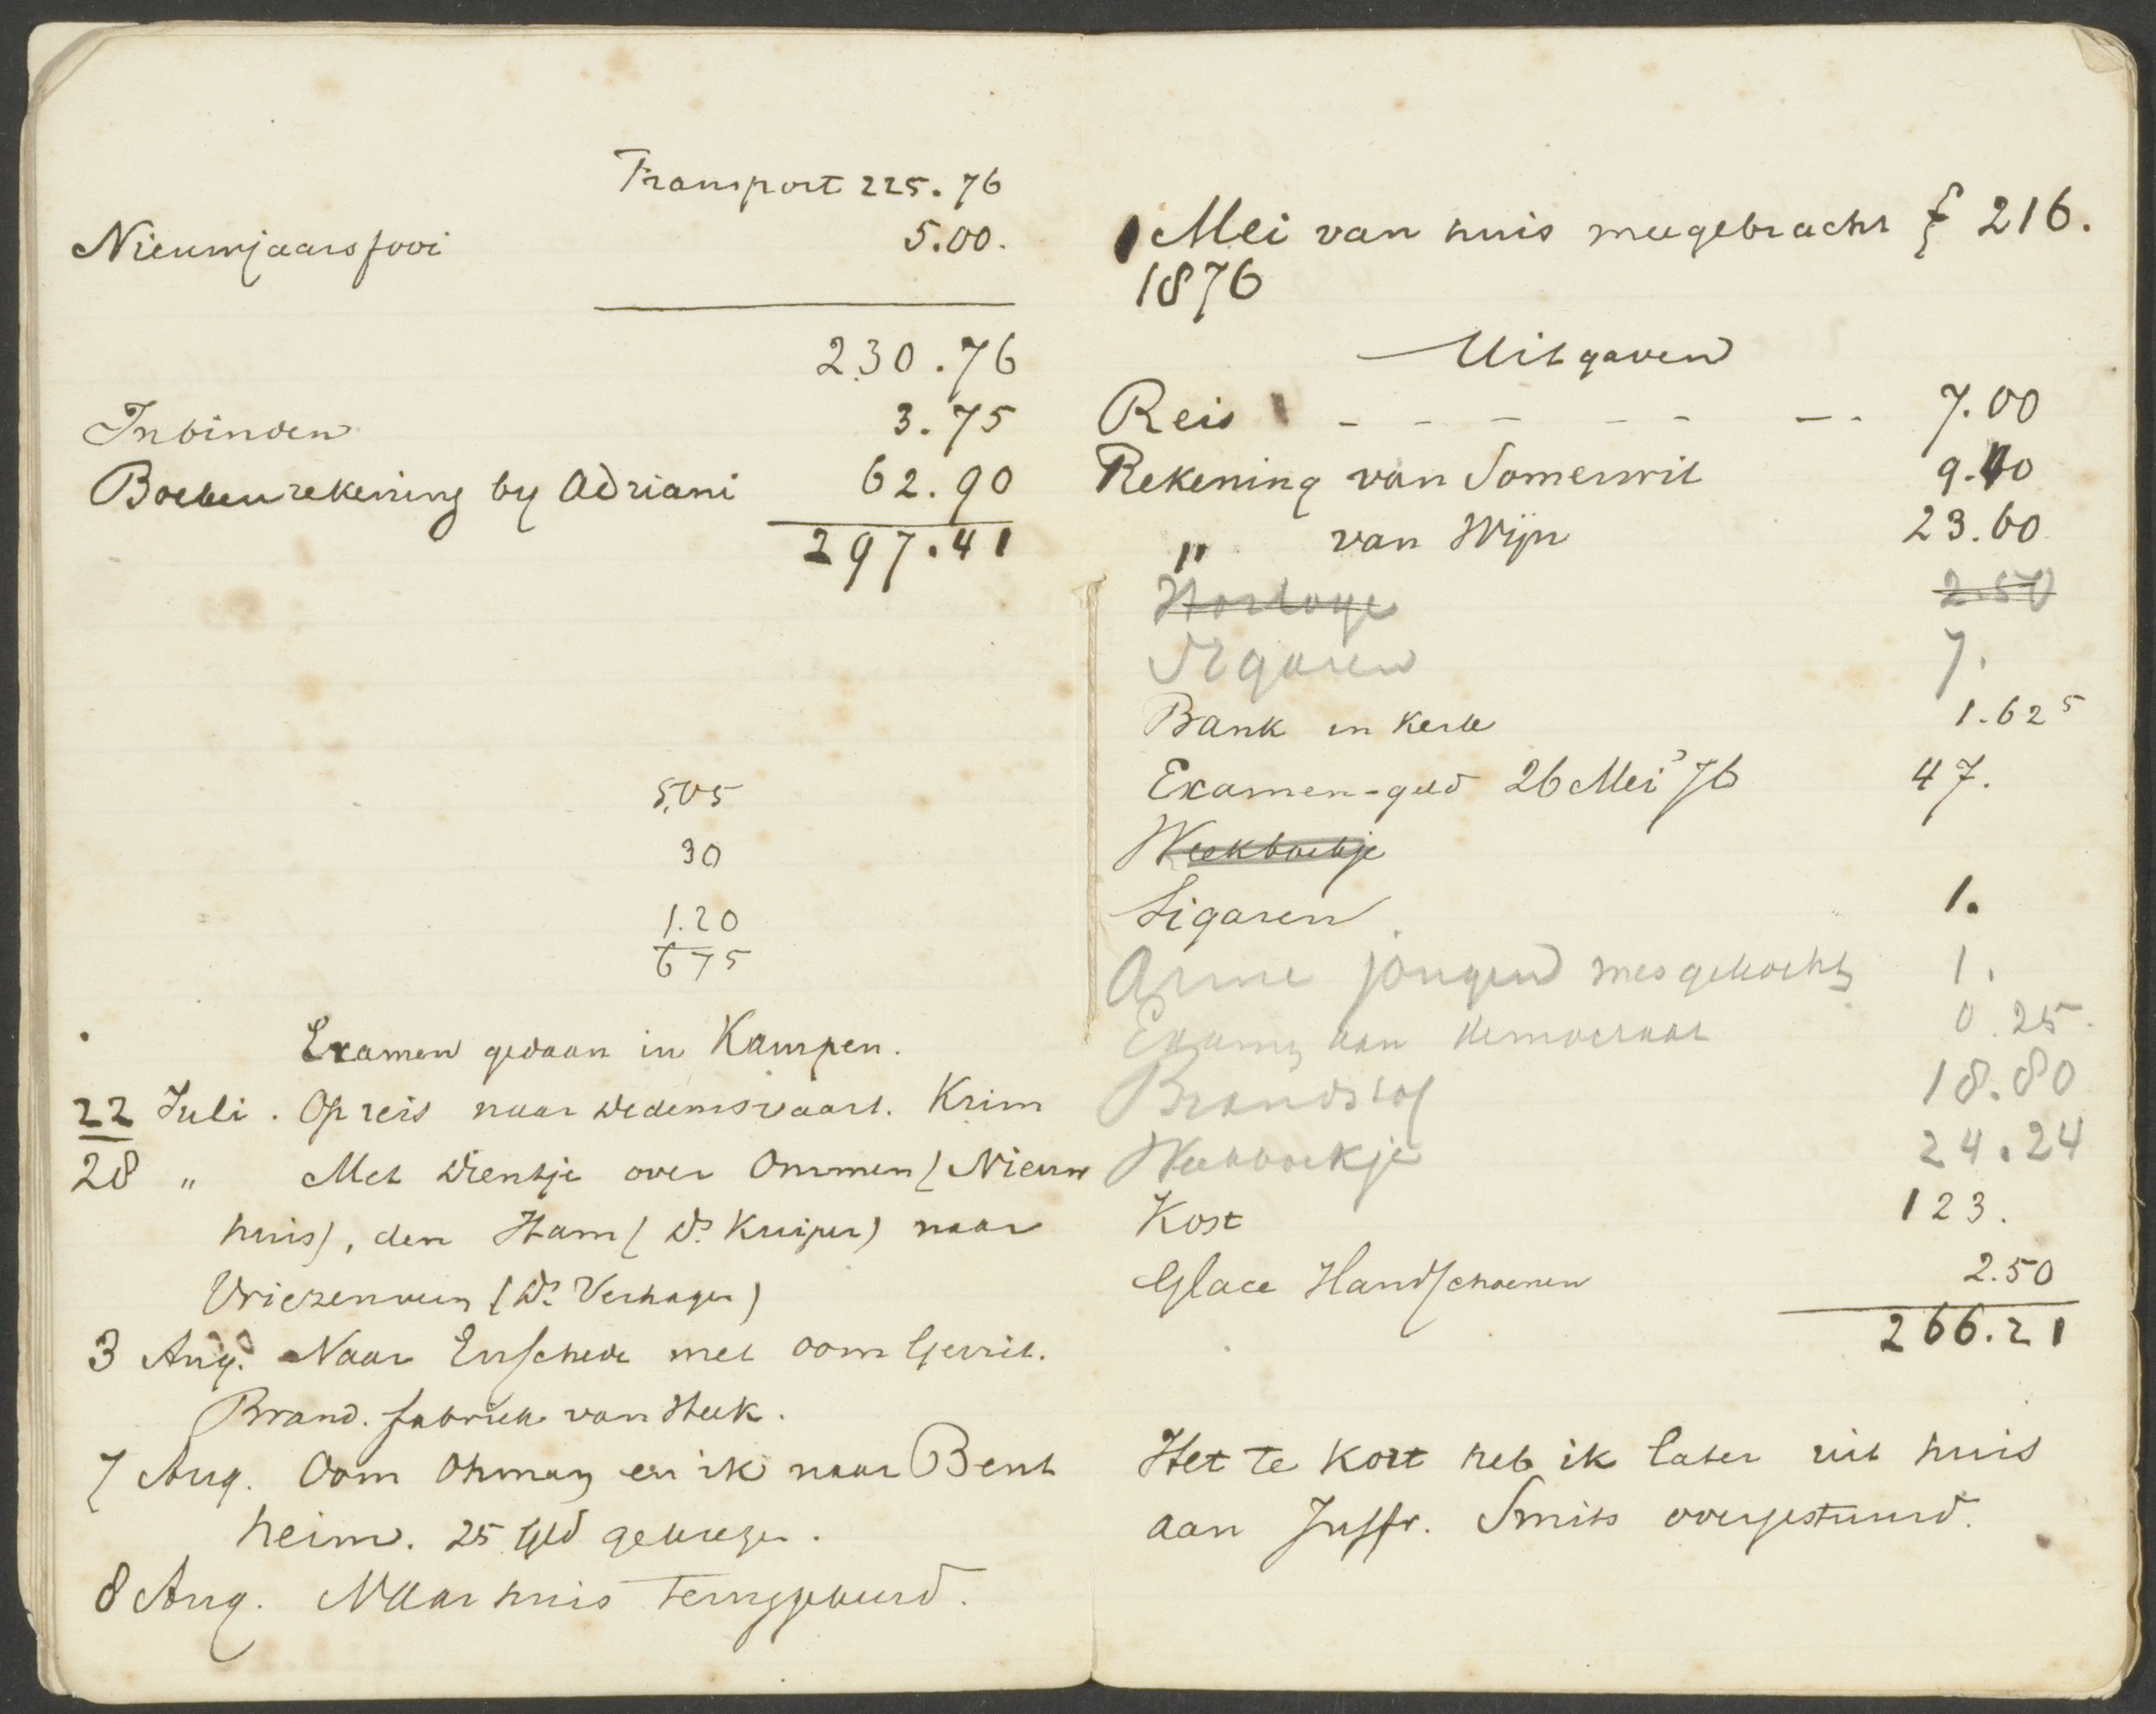 Transport 225.76
Nieuwjaarsfooi 5.00.
230.76
Inbinden 3.75
Boekenrekening by Adriani 62.90
297.41
5,05
30
1.20
675
Examen gedaan in Kampen.
22 Juli. Op reis naar Dedemsvaart. Krim
28 " Met Dientje over Ommen (Nieuw
huis), den Ham (Ds. Kuiper) naar
Vriezenveen (Ds. Verhagen)
3 Aug. Naar Enschede met oom Gerrit.
Brand. fabriek van Heek.
7 Aug. Oom Ohman en ik naar Bent
heim. 25 Gld gekregen.
8 Aug. Naar huis teruggekeerd.
1 Mei van huis meegebracht f 216.
1876
Uitgaven
Reis - - - - - - - 7.00
Rekening van Somerwil 9.40
" van Wijn 23.60
Horloge 2.50
Sigaren 7.
Bank in Kerk 1.62 5
Examen-geld 26 Mei '76 47.
Weekboekje
Sigaren 1.
Arme jongen mes gekocht 1.
aan 0.25.
Brandstof 18.80
Weekboekje 24.24
Kost 123.
Glace Handschoenen 2.50
266.21
Het te kort heb ik later uit huis
aan Juffr. Smits overgestuurd.